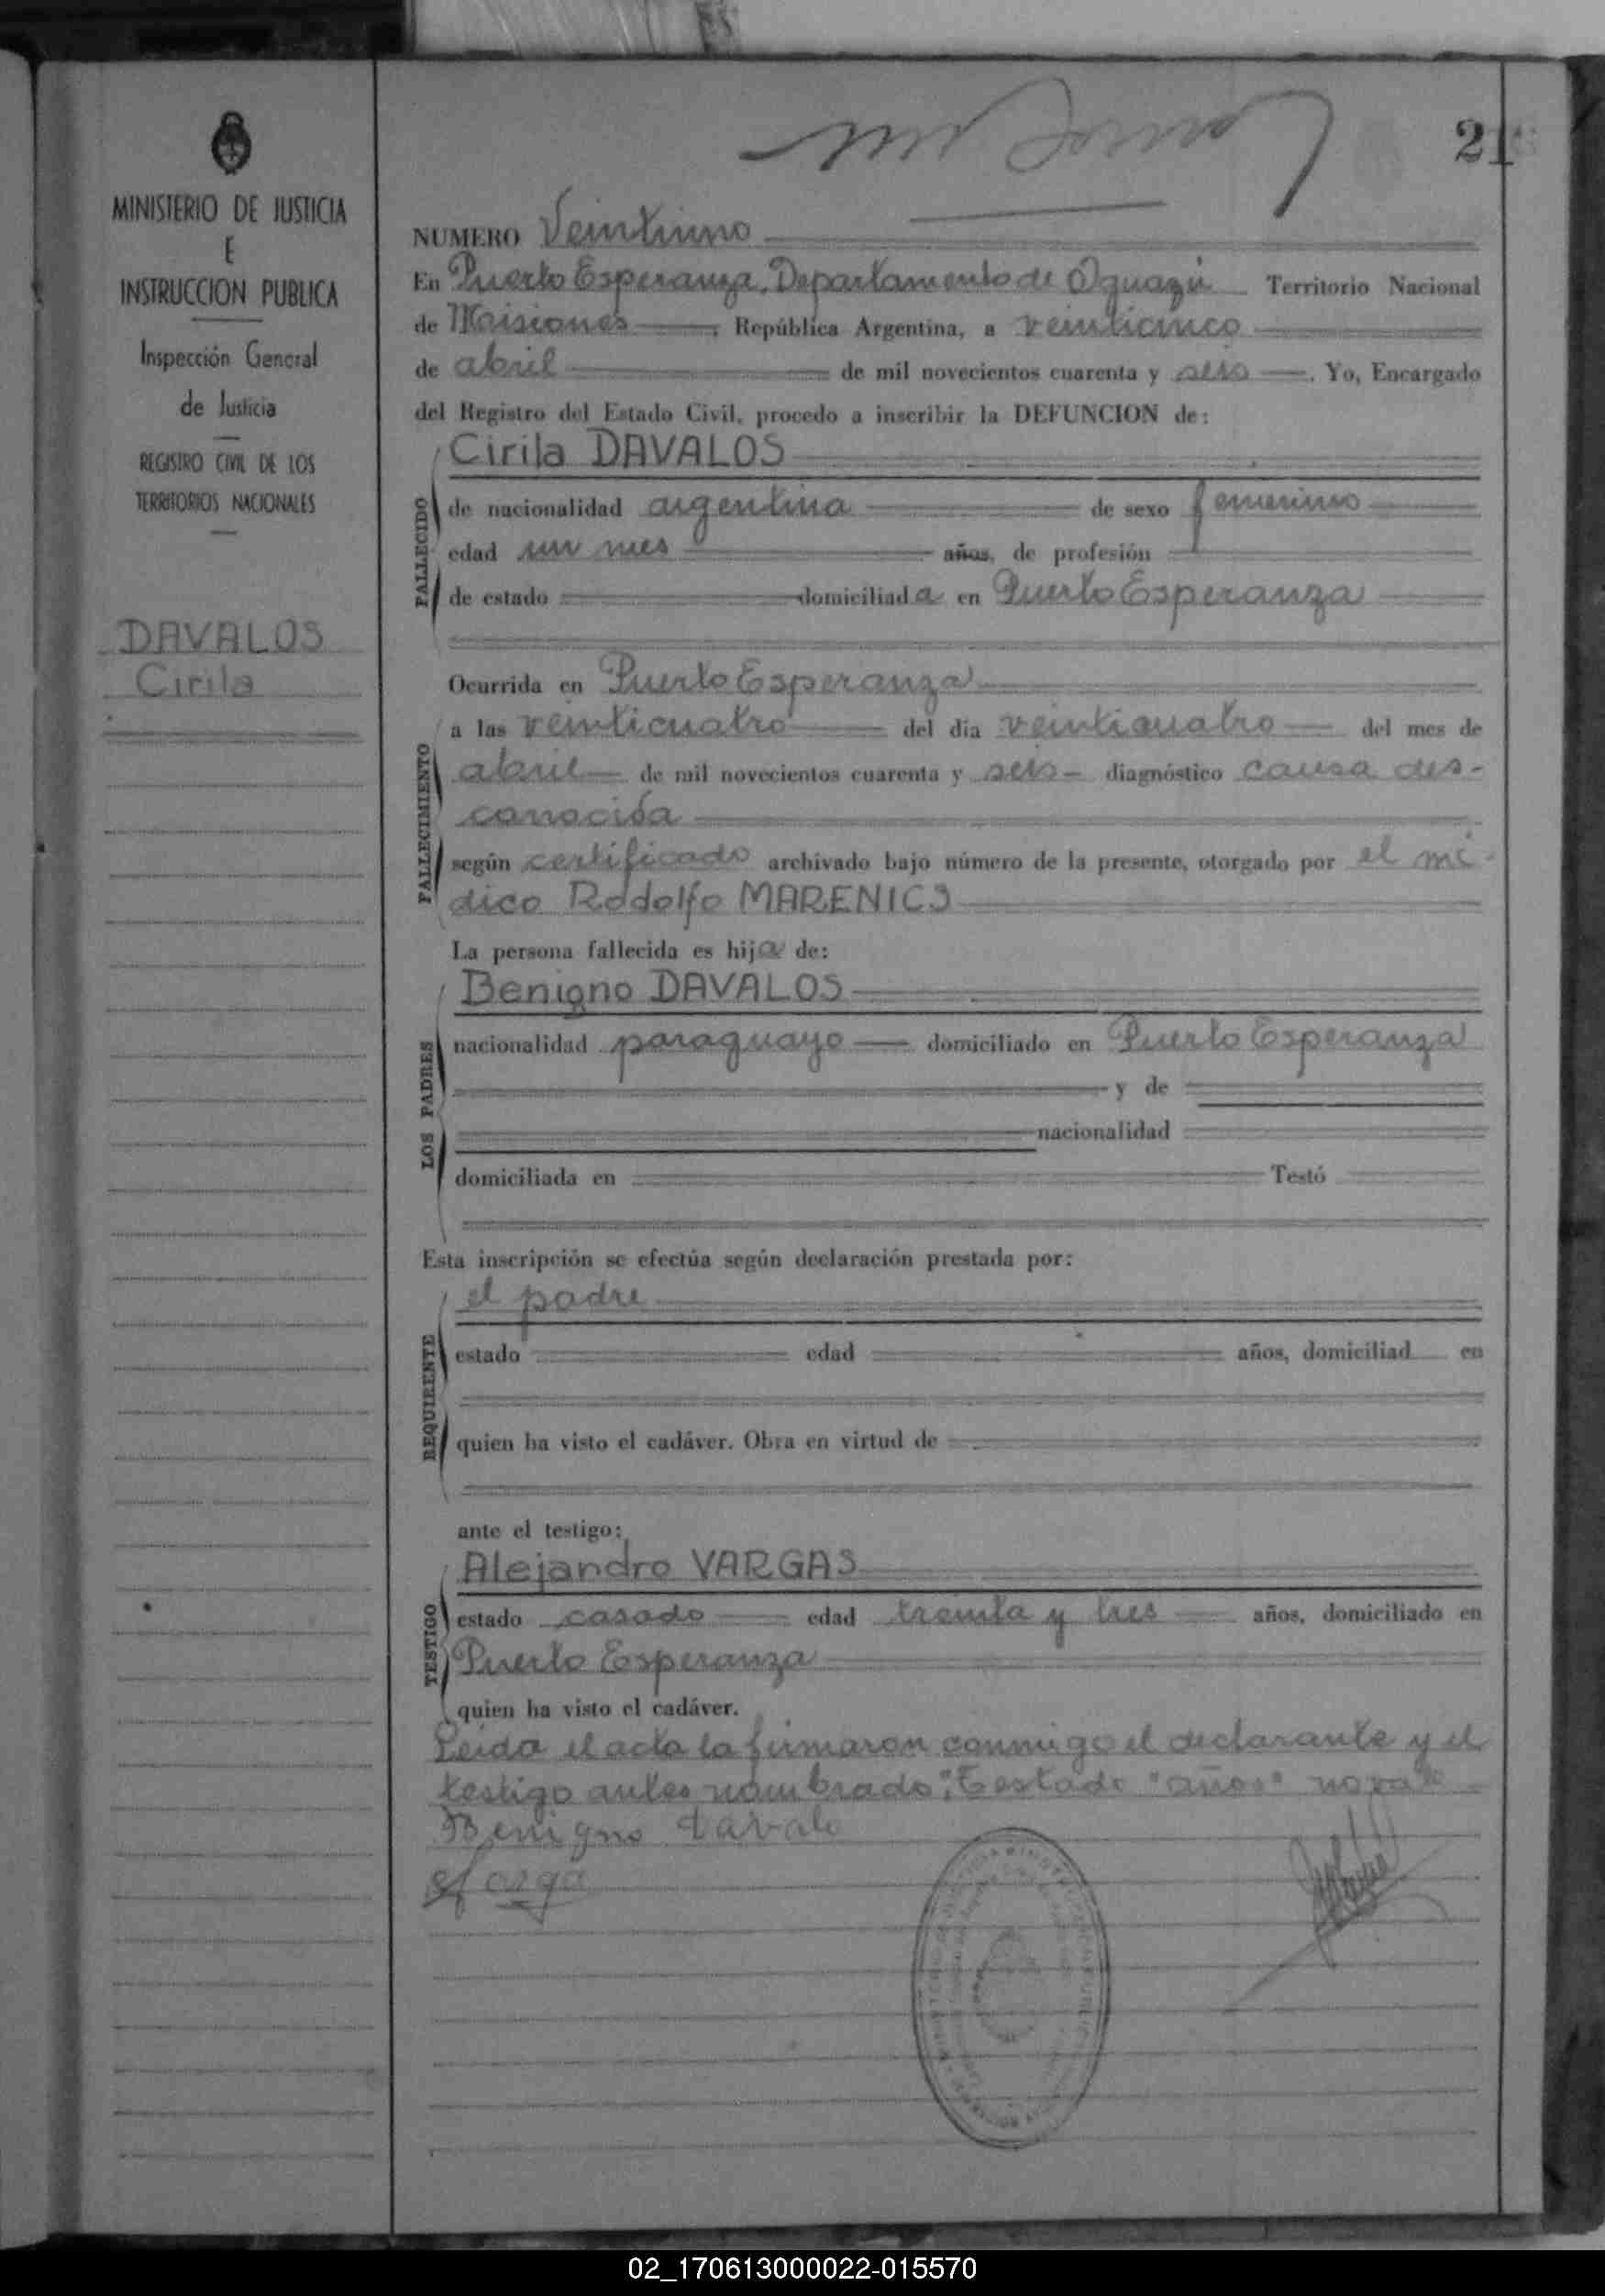 21
MINISTERIO DE JUSTICIA
E
INSTRUCCION PUBLICA
Inspección General
de Justicia
REGISTRO CIVIL DE LOS
TERRITORIOS NACIONALES
DAVALOS
Cirila
NUMERO Veintiuno
En Puerto Esperanza, Departamento de Yguazú Territorio Nacional
de Misiones, República Argentina, a veinticinco
de abril de mil novecientos cuarenta y seis. Yo, Encargado
del Registro del Estado Civil, procedo a inscribir la DEFUNCION de:
Cirila DAVALOS
FALLECIDO
de nacionalidad argentina de sexo femenino
edad un mes años, de profesión
de estado domiciliada en Puerto Esperanza
Ocurrida en Puerto Esperanza
FALLECIMIENTO
a las veinticuatro del día veinticuatro del mes de
abril de mil novecientos cuarenta y seis diagnóstico causa des-
conocida
según certificado archivado bajo número de la presente, otorgado por el mé-
dico Rodolfo MARENICS
La persona fallecida es hija de:
Benigno DAVALOS
LOS PADRES
nacionalidad paraguayo domiciliado en Puerto Esperanza
y de
nacionalidad
domiciliada en Testó
Esta inscripción se efectúa según declaración prestada por:
el padre
REQUIRENTE
estado edad años, domiciliad en
quien ha visto el cadáver. Obra en virtud de
ante el testigo:
Alejandro VARGAS
TESTIGO
estado casado edad treinta y tres años, domiciliado en
Puerto Esperanza
quien ha visto el cadáver.
Leída el acta la firmaron conmigo el declarante y el
testigo antes nombrado; Testado "años" no vale
Benigno Davalo
02_170613000022-015570